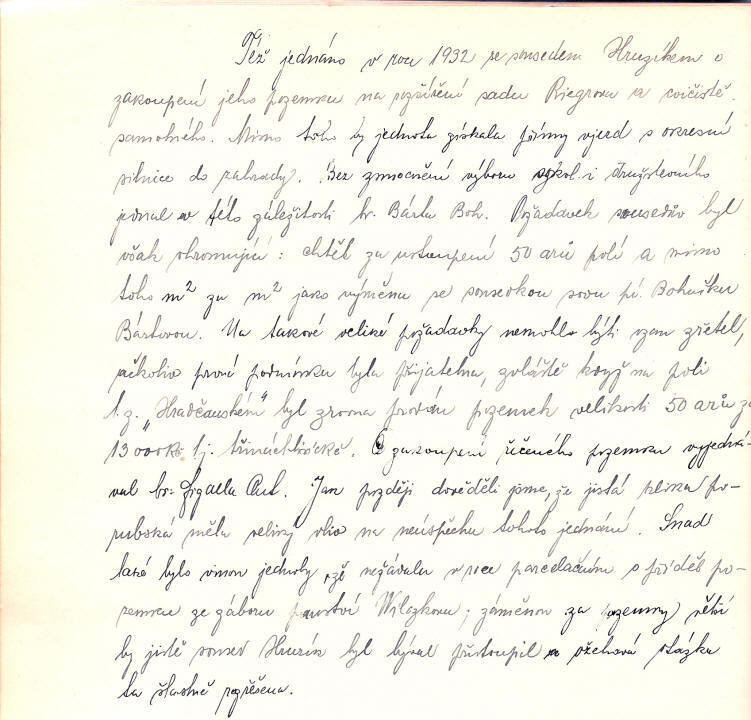 Též jednáno v roce 1932 se sousedem Hruzíkem o
zakoupení jeho pozemku na rozšíření sadu Riegrova a cvičiště
samotného. Mimo toho by jednota získala přímý vjezd s okresní
silnice do zahrady. Bez zmocnění výboru sokol. i družstevního
jednal v této záležitosti br. Bárta Boh. Požadavek sousedův byl
však ohromující: chtěl za ustoupení 50 arů polí a mimo
toho m² za m² jako výměnu se sousedkou svou pí. Bohuškou
Bártovou. Na takové veliké požadavky nemohlo býti vzam zřetel,
ačkoliv první podmínka byla přijatelna, zvláště když na poli
t. z. "Hradčanském" byl zrovna prodán pozemek velikosti 50 arů za
13000Kč tj. třinácttisíckč. O zakoupení řečeného pozemku vyjedná-
val br. Ant. Jan později dověděli jsme, že jistá klika po-
rubská měla veliký vliv na neúspěchu tohoto jednání. Snad
také bylo vinou jednoty, že nežádala v roce parcelačním o příděl po-
zemku ze záboru panství Wilczkova; záměnou za pozemky větší
by jistě soused Hruzík byl býval přistoupil a ožehavá otázka
ta šťastně rozřešena.